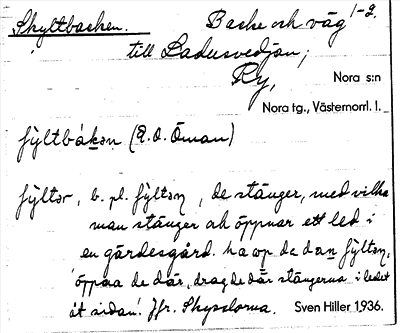 Skyltbacken. Backe och väg 1-2.
till Ladusvedjan;
Ry, Nora s:n
Nora tg., Västernorrl. l.
fy̆ltbákan (E.O. Öman)
fyltər, b. pl. fyltən, de stänger, med vilka
man stänger och öppnar ett led i
en gärdesgård. ha op də dan fyltən,
'öppna de där, drag de där stängerna i ledet
åt sidan'. Jfr. Sven Hiller 1936.